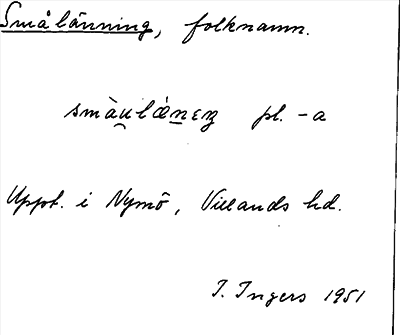 Småländning, folknamn.
smàu̯lǽnɛŋ pl. -a
Uppt. i Nymö, Villands hd.
I. Ingers 1951